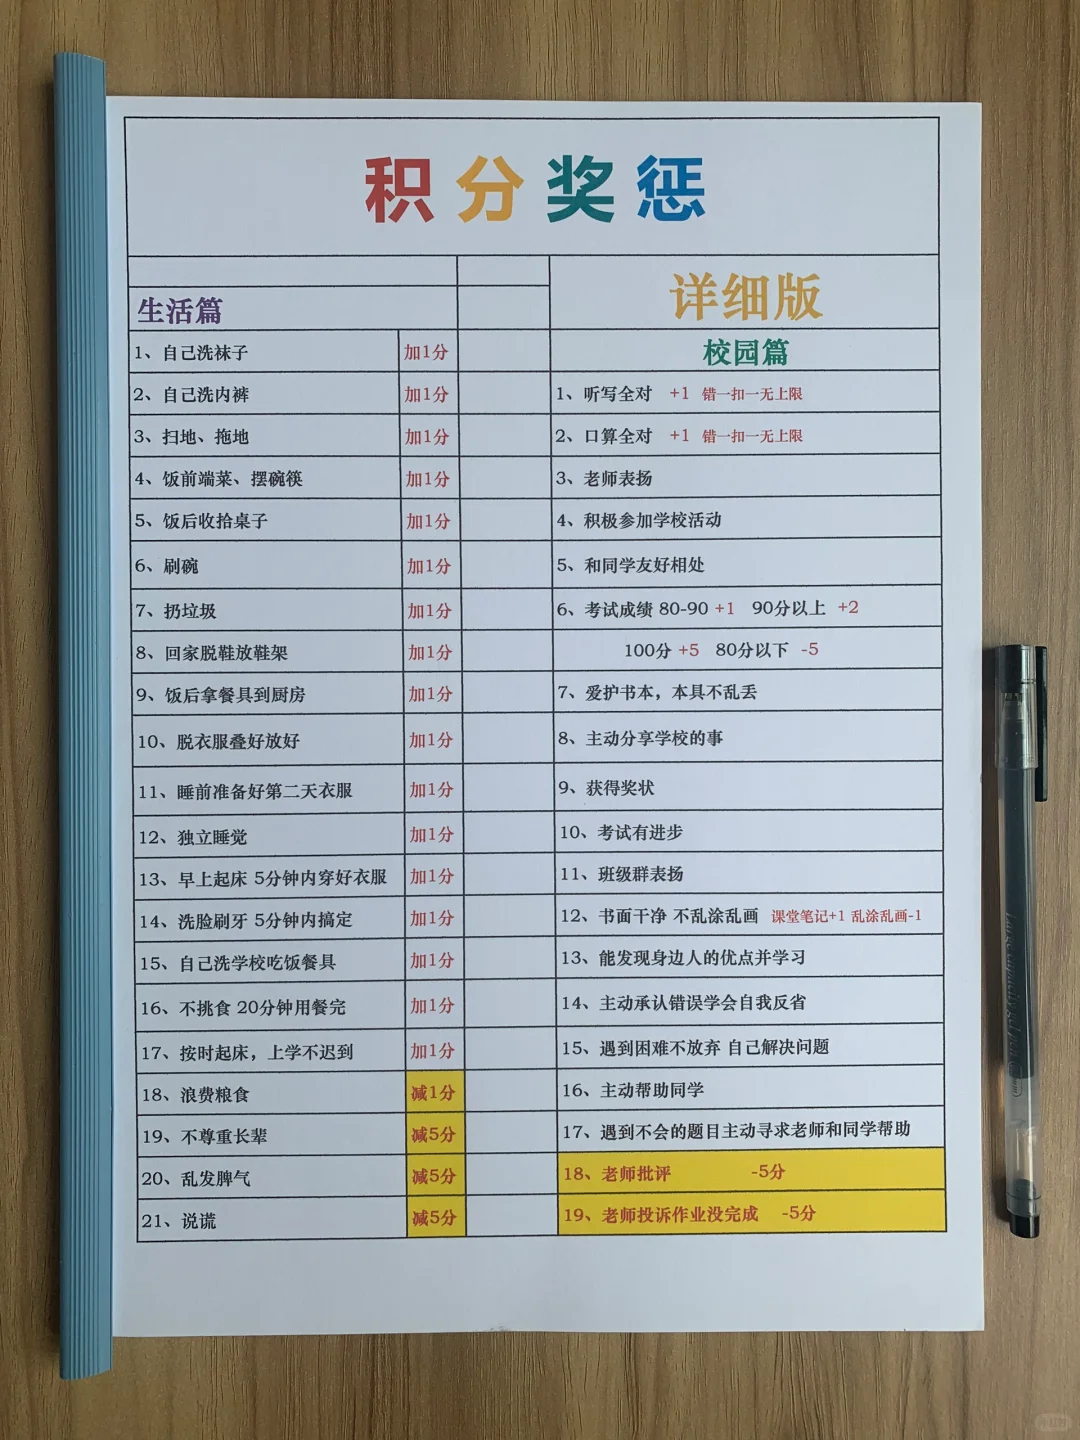 积分奖惩
详细版
生活篇
1、自己洗袜子 加1分
2、自己洗内裤 加1分
3、扫地、拖地 加1分
4、饭前端菜、摆碗筷 加1分
5、饭后收拾桌子 加1分
6、刷碗 加1分
7、扔垃圾 加1分
8、回家脱鞋放鞋架 加1分
9、饭后拿餐具到厨房 加1分
10、脱衣服叠好放好 加1分
11、睡前准备好第二天衣服 加1分
12、独立睡觉 加1分
13、早上起床 5分钟内穿好衣服 加1分
14、洗脸刷牙 5分钟内搞定 加1分
15、自己洗学校吃饭餐具 加1分
16、不挑食 20分钟用餐完 加1分
17、按时起床，上学不迟到 加1分
18、浪费粮食 减1分
19、不尊重长辈 减5分
20、乱发脾气 减5分
21、说谎 减5分
校园篇
1、听写全对 +1 错一扣一无上限
2、口算全对 +1 错一扣一无上限
3、老师表扬
4、积极参加学校活动
5、和同学友好相处
6、考试成绩 80-90 +1 90分以上 +2
100分 +5 80分以下 -5
7、爱护书本，本具不乱丢
8、主动分享学校的事
9、获得奖状
10、考试有进步
11、班级群表扬
12、书面干净 不乱涂乱画 课堂笔记+1 乱涂乱画-1
13、能发现身边人的优点并学习
14、主动承认错误学会自我反省
15、遇到困难不放弃 自己解决问题
16、主动帮助同学
17、遇到不会的题目主动寻求老师和同学帮助
18、老师批评 -5分
19、老师投诉作业没完成 -5分